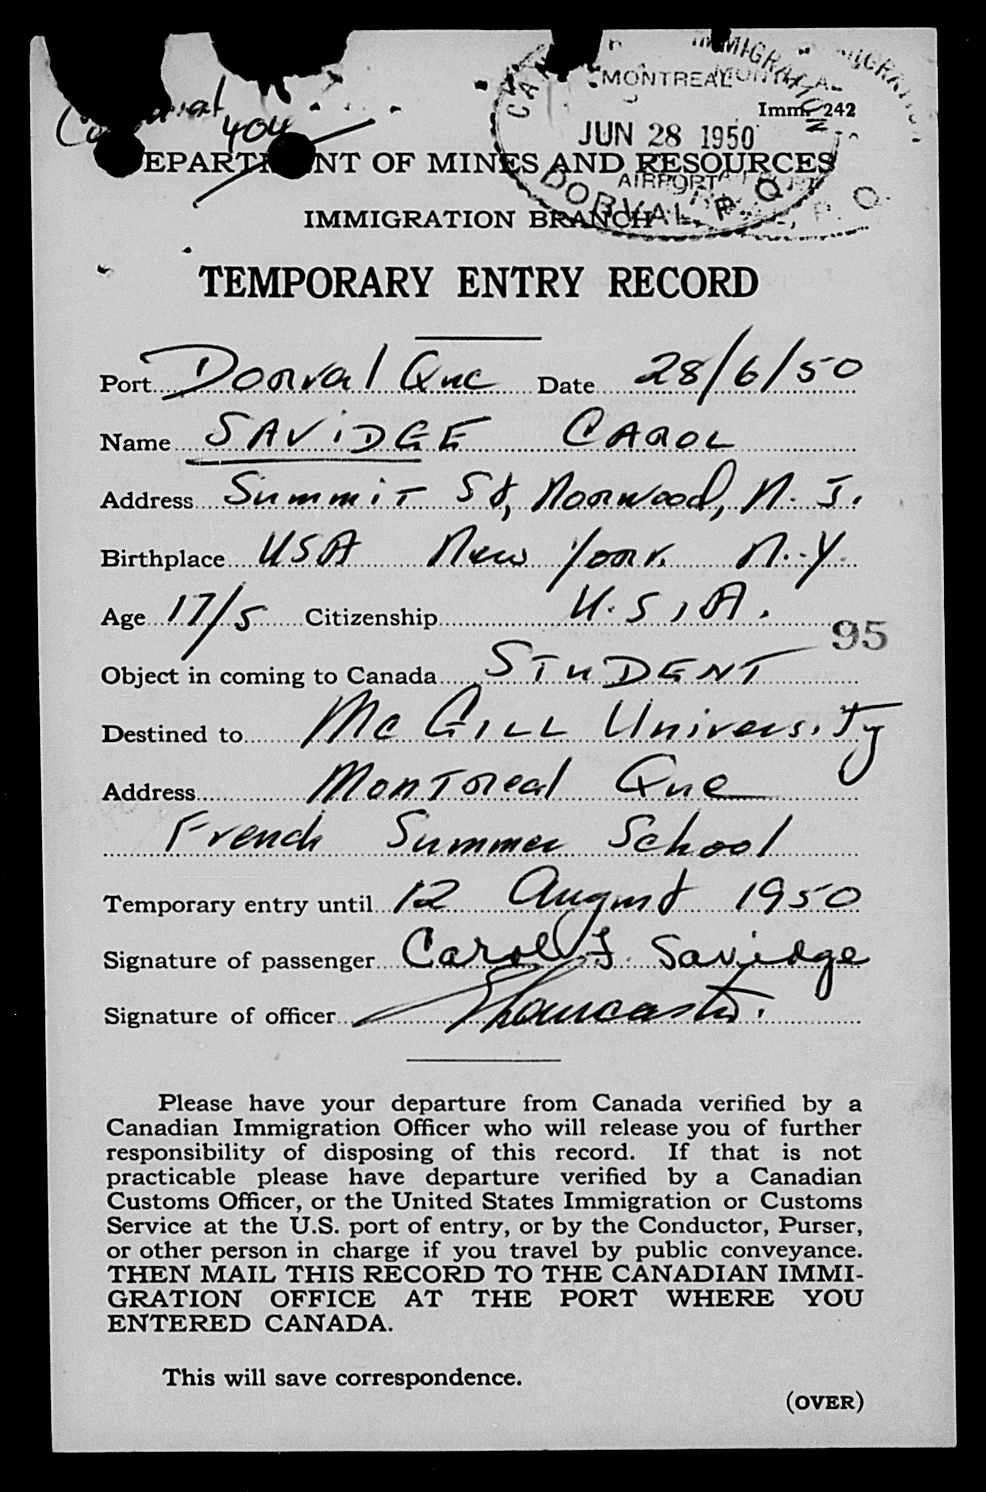 MONTREAL
Imm. 242
JUN 28 1950
404
DEPARTMENT OF MINES AND RESOURCES
AIRPORT
DORVAL, P. Q.
IMMIGRATION BRANCH
TEMPORARY ENTRY RECORD
Port Dorval Que Date 28/6/50
Name SAVIDGE CAROL
Address Summit St, Norwood, N. J.
Birthplace USA New York. N.Y.
Age 17/5 Citizenship U.S.A.
95
Object in coming to Canada STUDENT
Destined to McGill University
Address Montreal Que
French Summer School
Temporary entry until 12 August 1950
Signature of passenger Carol J. Savidge
Signature of officer
Please have your departure from Canada verified by a
Canadian Immigration Officer who will release you of further
responsibility of disposing of this record. If that is not
practicable please have departure verified by a Canadian
Customs Officer, or the United States Immigration or Customs
Service at the U.S. port of entry, or by the Conductor, Purser,
or other person in charge if you travel by public conveyance.
THEN MAIL THIS RECORD TO THE CANADIAN IMMI-
GRATION OFFICE AT THE PORT WHERE YOU
ENTERED CANADA.
This will save correspondence.
(OVER)